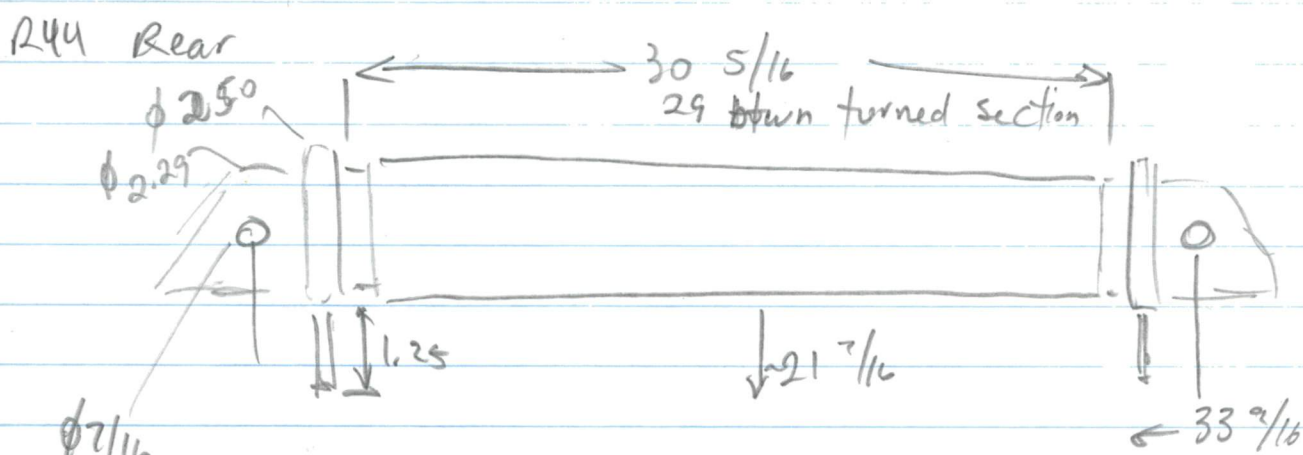 R44 Rear
30 5/16
29 btwn turned section
ϕ 2.50
ϕ 2.29
1.25
~21 7/16
ϕ7/16
← 33 9/16